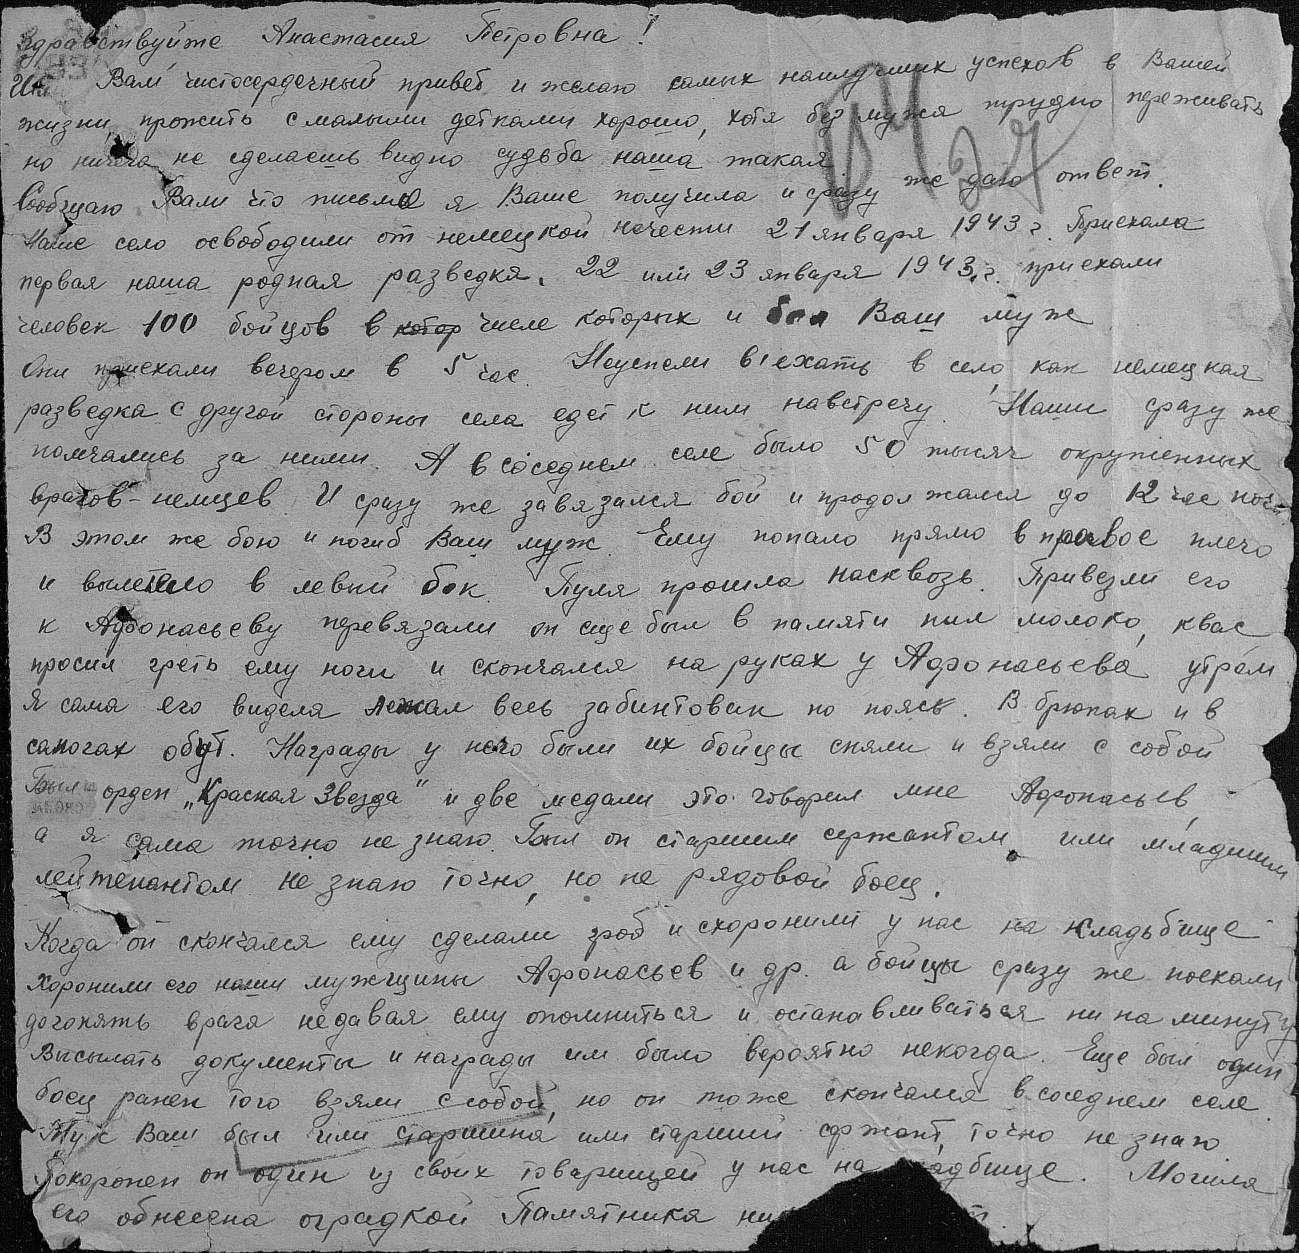 Здравствуйте Анастасия Петровна!
Вам чистосердечный привет и желаю самых наилучших успехов в Вашей
жизни, прожить с малыми детками хорошо, хотя без мужа трудно переживать
но ничего не сделаешь видно судьба наша такая.
Сообщаю Вам что письмо я Ваше получила и сразу же даю ответ.
Наше село освободили от немецкой нечести 21 января 1943 г. Приехала
первая наша родная разведка. 22 или 23 января 1943 г. приехали
человек 100 бойцов в котор числе которых и был Ваш муж
Они приехали вечером в 5 час. Неуспели въехать в село, как немецкая
разведка с другой стороны села едет к ним навстречу. Наши сразу же
помчались за ними. А в соседнем селе было 50 тысяч окруженных
врагов-немцев И сразу же завязался бой и продолжался до 12 час ночи
В этом же бою и погиб Ваш муж. Ему попало прямо в правое плечо
и вылетело в левый бок. Пуля прошла насквозь. Привезли его
к Афонасьеву перевязали он еще был в памяти пил молоко, квас
просил греть ему ноги и скончался на руках у Афонасьева утром
Я сама его видела лежал весь забинтован по пояс. В брюках и в
сапогах обут. Награды у него были их бойцы сняли и взяли с собой
Был орден „Красная Звезда" и две медали это говорил мне Афонасьев,
а я сама точно не знаю. Был он старшим сержантом или младшим
лейтенантом не знаю точно, но не рядовой боец.
Когда он скончался ему сделали гроб и схоронили у нас на кладьбище
Хоронили его наши мужщины Афонасьев и др. а бойцы сразу же поехали
догонять врага недавая ему опомниться и останавливаться ни на минуту
Высылать документы и награды им было вероятно некогда. Еще был один
боец ранен того взяли с собой, но он тоже скончался в соседнем селе.
Муж Ваш был или старшина или старший сержант точно не знаю.
Похоронен он один из своих товарищей у нас на Могила
его обнесена оградкой Памятника